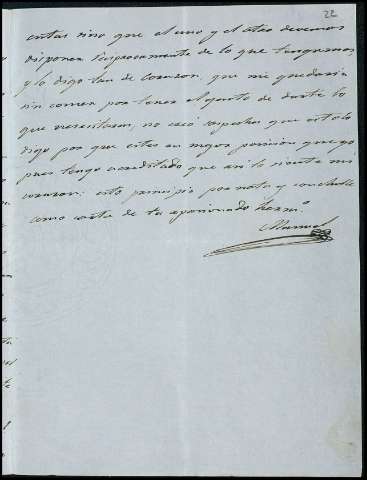 22
entas sino que el uno y el otro devemos
disponer reciprocamente de lo que tengamos
y lo digo tan de corazon, que me quedaria
sin comer por tener el gusto de darte lo
que necesitaras, no creas que esto lo
digo por que estes en mejor posicion que yo
pues tengo acreditado que asi lo siente mi
corazon: esto principio por nota y concluye
como carta de tu apasionado herm.º
Manuel